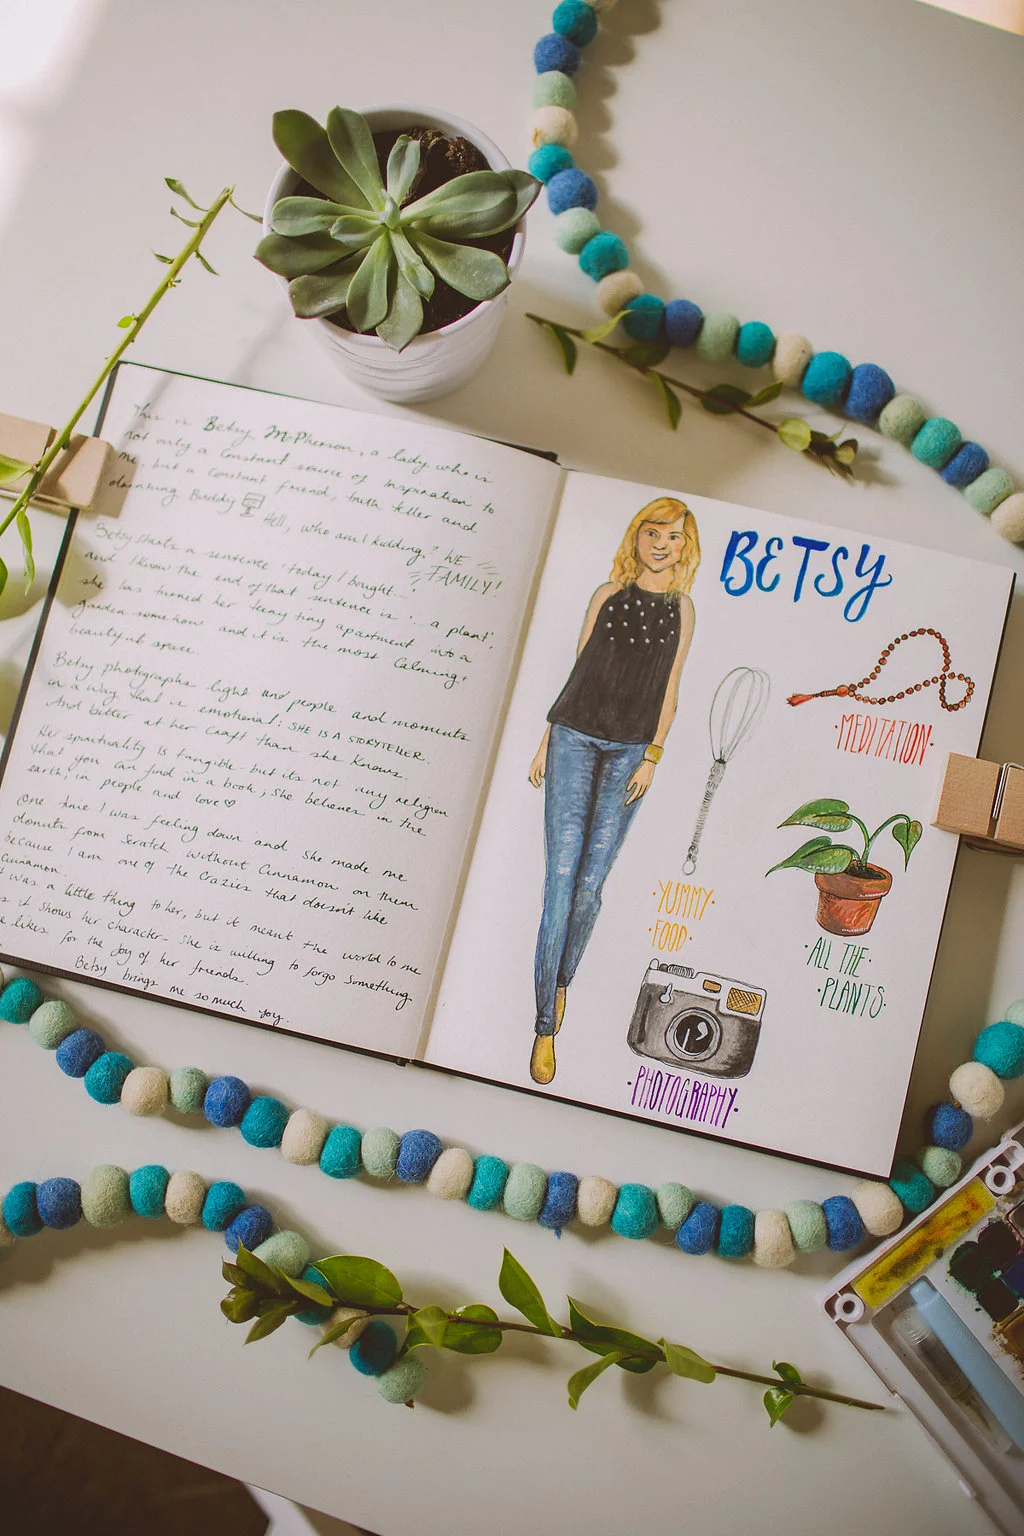 This is Betsy McPherson, a lady who is
not only a constant source of inspiration to
me, but a constant friend, truth teller and
drinking Buddy Hell, who am I kidding? WE
FAMILY!
Betsy starts a sentence 'today I bought...'
and I know the end of that sentence is '... a plant'
she has turned her teeny tiny apartment into a
garden somehow and it is the most calming,
beautiful space.
Betsy photographs light and people and moments
in a way that is emotional: SHE IS A STORYTELLER.
And better at her craft than she knows.
Her spirituality is tangible but its not any religion
that you can find in a book, she believes in the
earth, in people and love
One time I was feeling down and she made me
donuts from scratch without Cinnamon on them
because I am one of the crazies that doesn't like
cinnamon.
was a little thing to her, but it meant the world to me
it shows her character - she is willing to forgo something
likes for the joy of her friends.
Betsy brings me so much joy.
BETSY
·MEDITATION·
·YUMMY·
·FOOD·
·ALL THE·
·PLANTS·
·PHOTOGRAPHY·